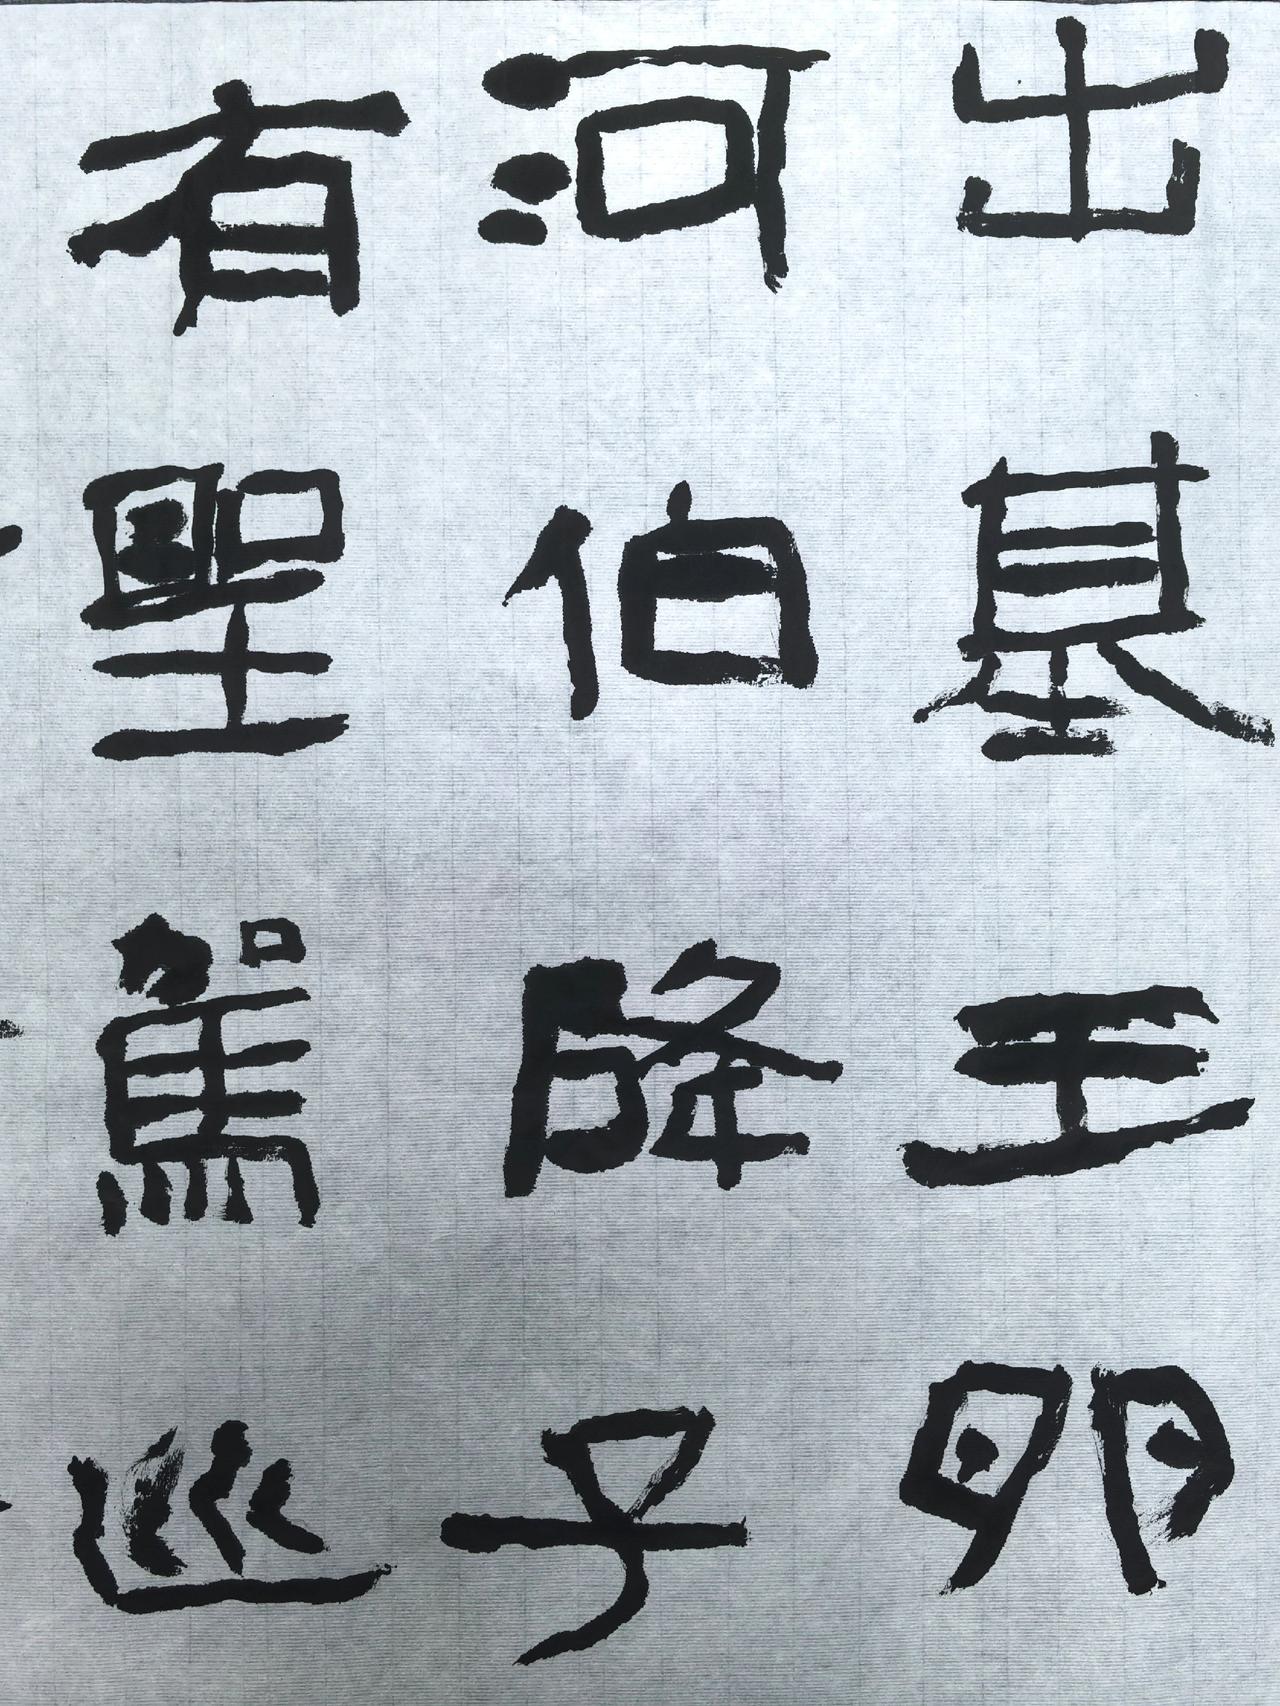 出基王卵
河伯降子
有聖駕巡